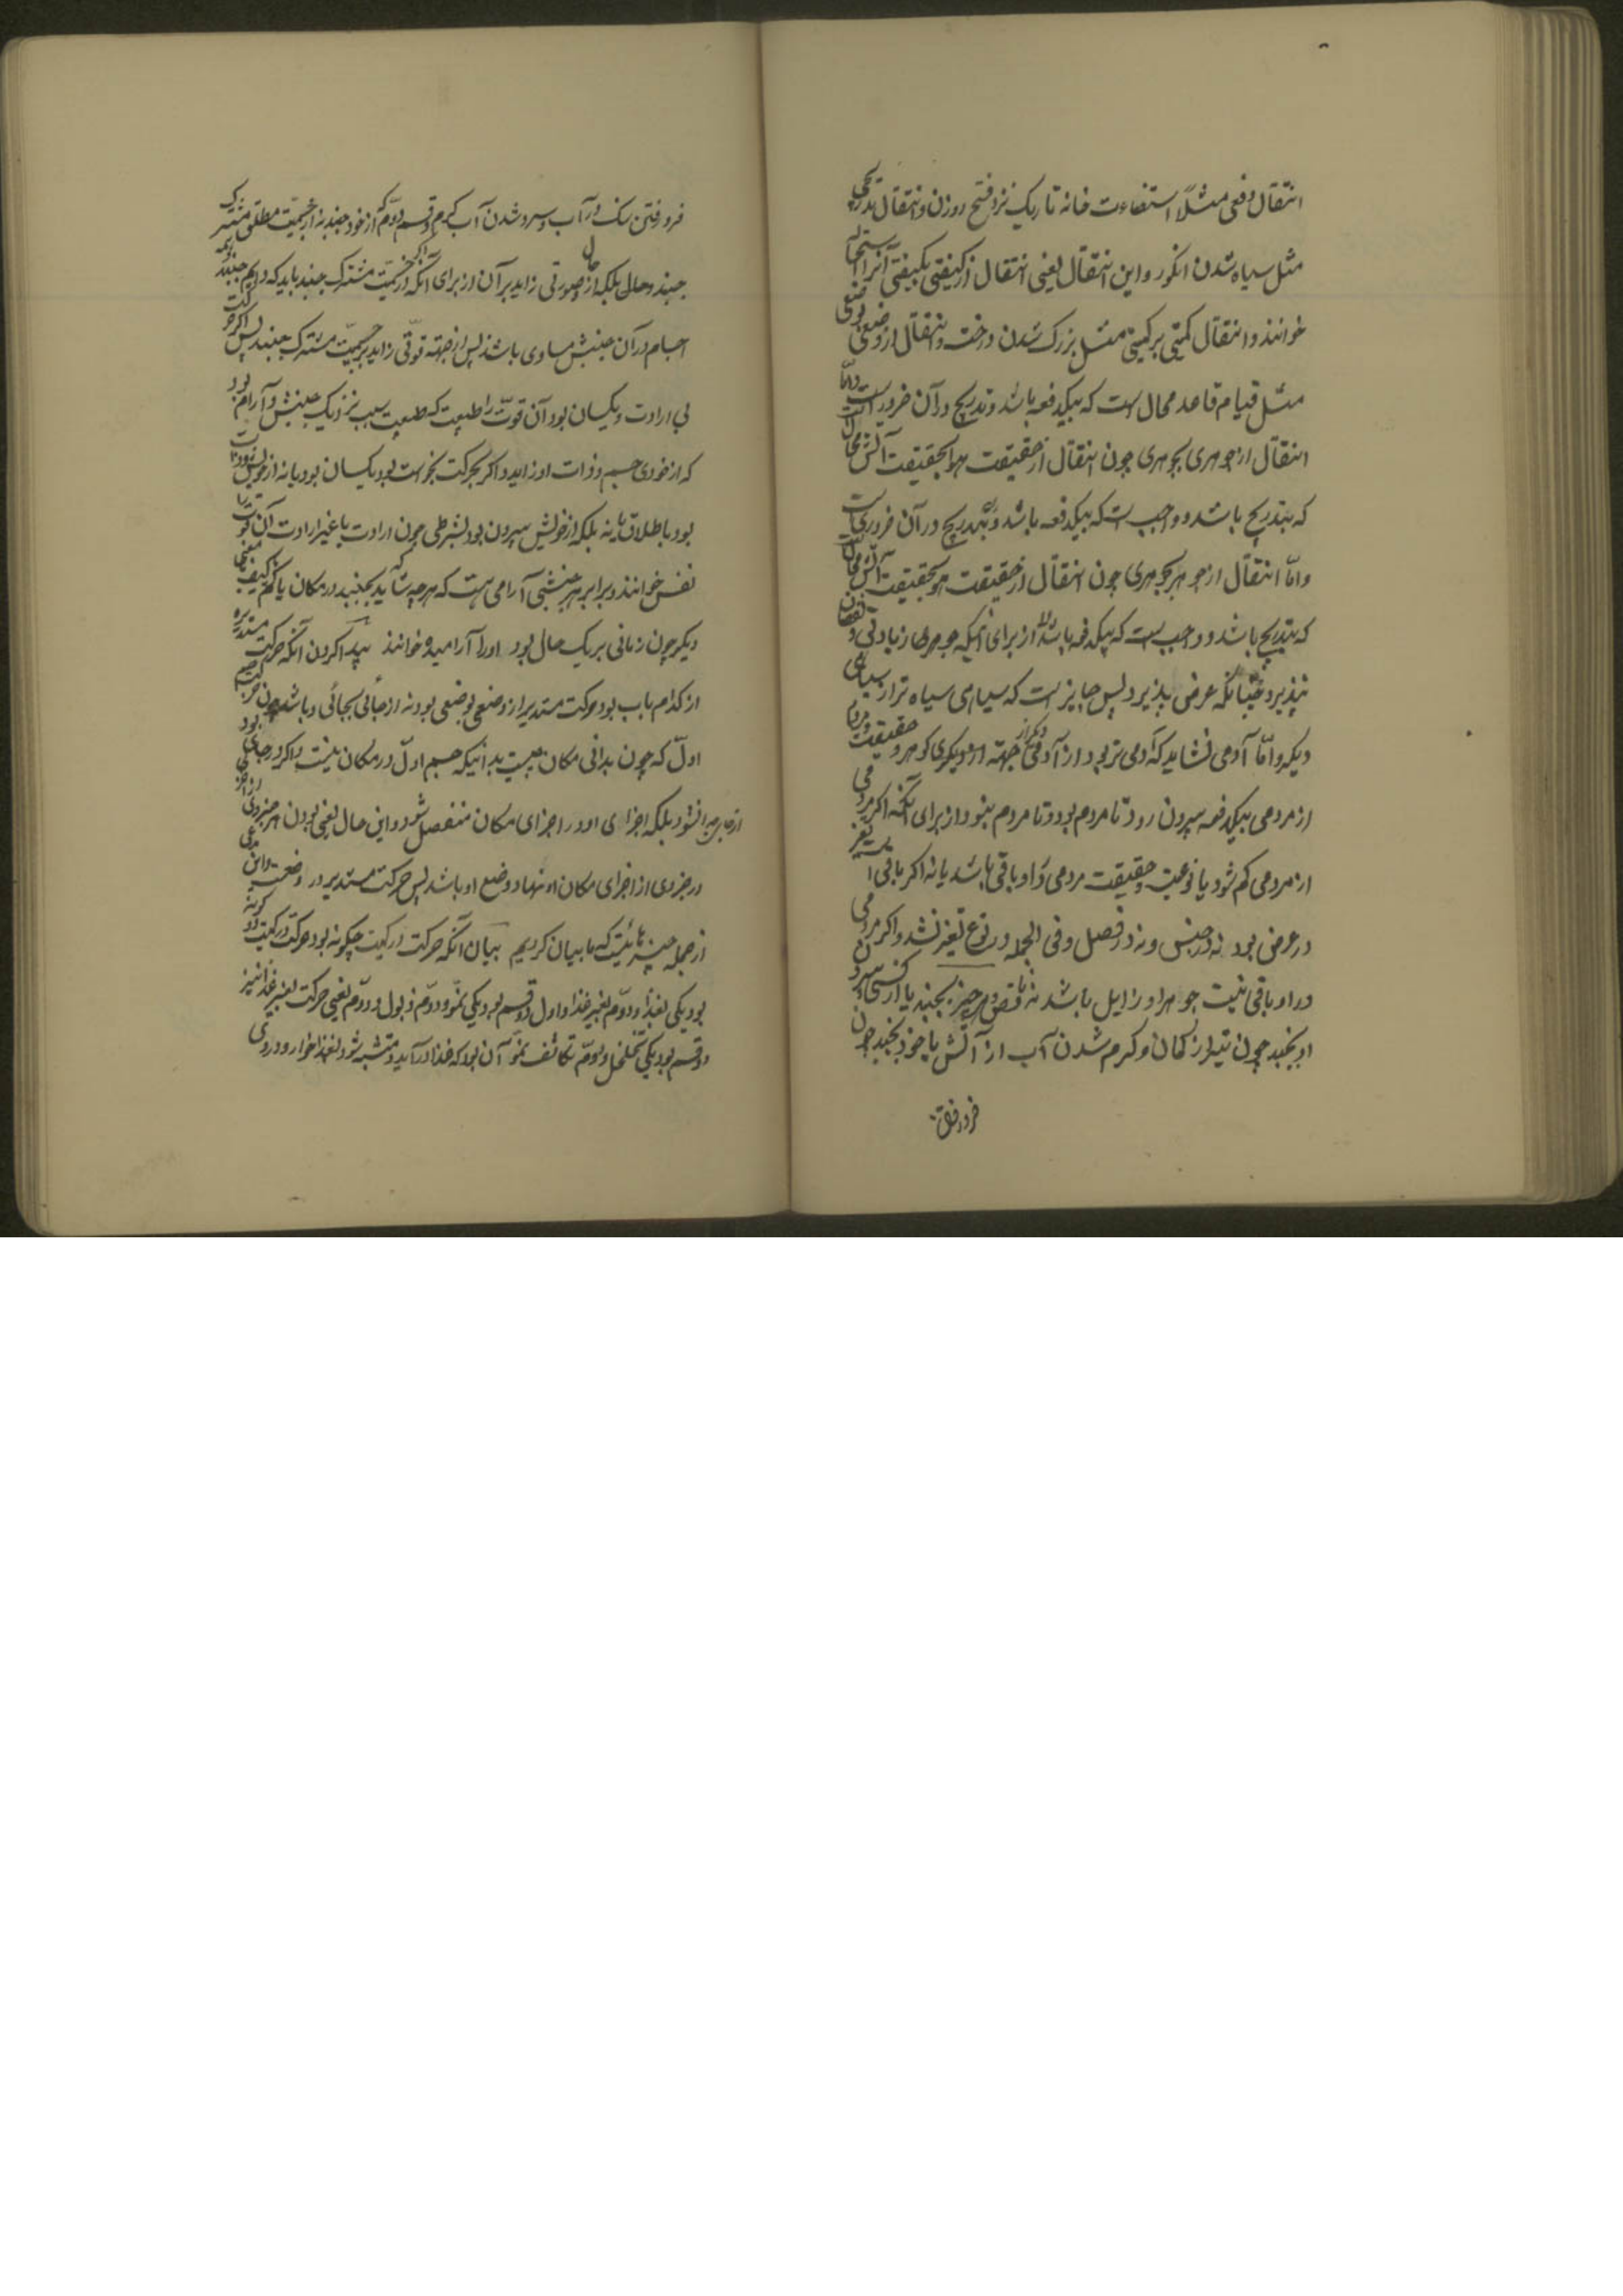 انتقال دفعی مثلاً استضاءت خانه تاریک نزد فتح روزن و انتقال تدریجی
مثل سیاه شدن انکور و این انتقال یعنی انتقال از کیفیتی بکیفیتی آنرا استحاله
خوانند و انتقال کمیتی بر کمیتی مثل بزرک شدن درخت و انتقال از وضعی بوضعی
مثل قیام قاعد محال است که بیکدفعه باشد و تدریج در آن ضروریست و امّا
انتقال از جوهری بجوهری چون انتقال از حقیقت هوا بحقیقت آتش محال
که بتدریج باشد و واجب است که بیکدفعه باشد و تدریج در آن ضروریست
و امّا انتقال از جوهر بجوهری چون انتقال از حقیقت هوا بحقیقت آتش محال
که بتدریج باشد و واجب است که بیکدفعه باشد از برای آنکه جوهرها زیادتی و نقصان
نپذیرد چنانکه عرض پذیرد پس جایز است که سیاهی سیاه تر از سیاهی
دیکر و امّا آدمی نشاید که آدمی تر بود از آدمی دیکر از جهة او دیکری کوهر و حقیقت
از مردمی بیکدفعه بیرون رود تا مردم بود و تا مردم نبود از برای آنکه اکر مردمی
از مردمی کم شود یا نوعیت و حقیقت مردمی او را باقی باشد یا نه اکر باقی است تغیر
در عرض بود نه در جنس و نه در فصل و فی الجمله در نوع تغیر نشد و اکر مردمی
در او باقی نیست جوهر او زایل باشد نه ناقص و هر چیز بجنبد یا از کسی بیرون
او بجنبد چون تیر از کمان و کرم شدن آب از آتش یا خود بجنبد چون
فرو رفتن
فرو رفتن سنک در آب و سرد شدن آب کرم و قسم دوّم که از خود جنبد نه از جسمیّت مطلق مشترک
جنبد و حالی بلکه از حال و صورتی زاید بر آن از برای آنکه اکر از جسمیّت مشترک جنبد باید که دایم جنبد و همه
اجسام در آن جنبش مساوی باشند پس از جهة قوّتی زاید بر جسمیّت مشترک جنبند پس اکر حرکت
بی ارادت و یکسان بود آن قوّت را طبیعت که طبیعت سبب نزدیک جنبش و آرام بود
که از خودی جسم و ذات او زاید و اکر بحرکت بخواست بود یکسان بود یا نه از خویش
بود باطلاق یا نه بلکه از خویش بیرون بود بشرطی چون ارادت یا غیر ارادت آن قوّت را
نفس خوانند و برابر هر جنبشی آرامی هست که هر چه شاید که بجنبد در مکان یا کم یا کیف یا معنی
دیکر چون زمانی بر یک حال بود او را آرامیده خوانند پیدا کردن آنکه حرکت مستدیره
از کدام باب بود حرکت مستدیر از وضعی بوضعی بود نه از جائی بجائی و باشد چون حرکت جسم
اوّل که چون بدانی مکان چیست بدانیکه جسم اوّل در مکان نیست و اکر در جای بود
از جای جدا نشود بلکه اجزای او در اجزای مکان منفصل شود و این حال یعنی بودن هر جزوی از اجزای
در جزوی از اجزای مکان او نهاد و وضع او باشد پس حرکت مستدیر در وضعست و این
از جمله چیزهائیست که ما بیان کردیم بیان آنکه حرکت در کمیت چکونه بود حرکت در کمیت دو کونه
بود یکی بغذا و دوّم بغیر غذا و اول دو قسم بود یکی نموّ و دوّم ذبول و دوّم یعنی حرکت بغیر غذا نیز
دو قسم بود یکی تخلخل و دوّم تکاثف نموّ آن بود که غذا درآید و متشبه شود بغذا خوار و در وی